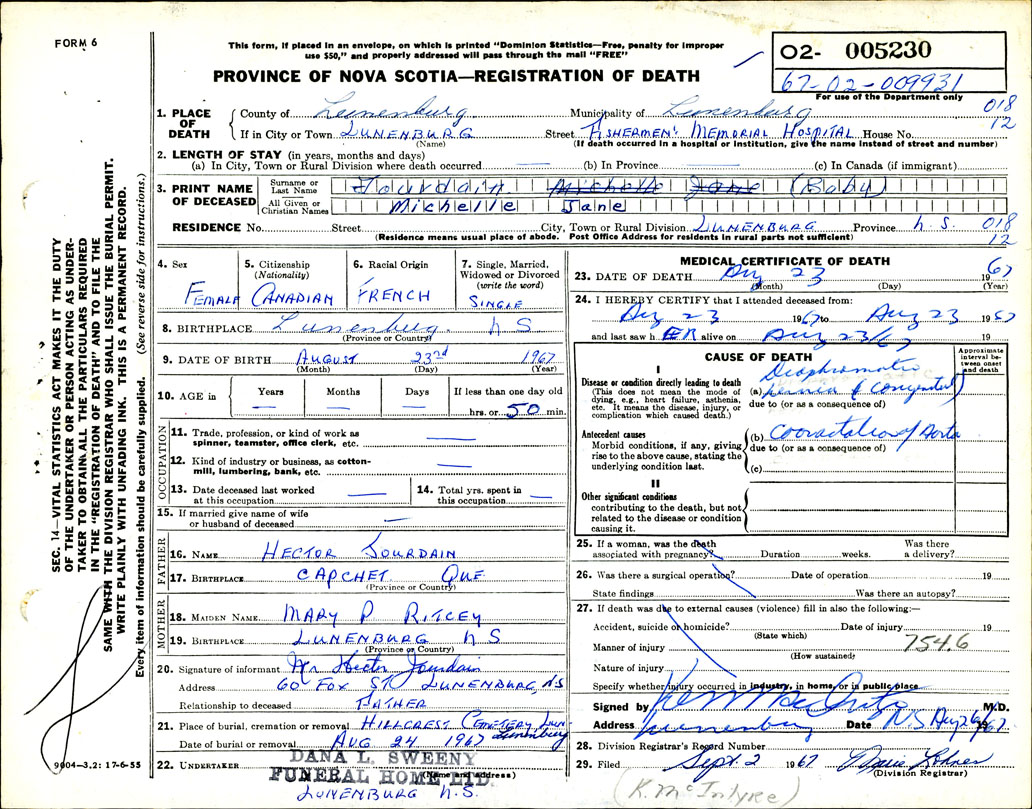 FORM 6
This form, if placed in an envelope, on which is printed "Dominion Statistics—Free, penalty for improper
use $50," and properly addressed will pass through the mail "FREE"
PROVINCE OF NOVA SCOTIA—REGISTRATION OF DEATH
02- 005230
67-02-009931
For use of the Department only
1. PLACE OF DEATH
County of Lunenburg Municipality of Lunenburg 018
If in City or Town LUNENBURG Street FISHERMEN'S MEMORIAL HOSPITAL House No. 12
(Name) (If death occurred in a hospital or institution, give the name instead of street and number)
2. LENGTH OF STAY (in years, months and days)
(a) In City, Town or Rural Division where death occurred — (b) In Province — (c) In Canada (if immigrant)
3. PRINT NAME OF DECEASED
Surname or Last Name Jourdain Michelle Jane (Baby)
All Given or Christian Names Michelle Jane
RESIDENCE No. Street City, Town or Rural Division LUNENBURG Province N.S. 018
12
(Residence means usual place of abode. Post Office Address for residents in rural parts not sufficient)
4. Sex FEMALE
5. Citizenship (Nationality) CANADIAN
6. Racial Origin FRENCH
7. Single, Married, Widowed or Divorced (write the word) SINGLE
8. BIRTHPLACE Lunenburg. N S.
(Province or Country)
9. DATE OF BIRTH AUGUST 23rd 1967
(Month) (Day) (Year)
10. AGE in Years — Months — Days — If less than one day old
hrs. or 50 min.
OCCUPATION
11. Trade, profession, or kind of work as
spinner, teamster, office clerk, etc. —
12. Kind of industry or business, as cotton-
mill, lumbering, bank, etc. —
13. Date deceased last worked
at this occupation —
14. Total yrs. spent in
this occupation —
15. If married give name of wife
or husband of deceased —
FATHER
16. NAME HECTOR JOURDAIN
17. BIRTHPLACE CAPCHET QUE
(Province or Country)
MOTHER
18. MAIDEN NAME MARY P RITCEY
19. BIRTHPLACE LUNENBURG N S
(Province or Country)
20. Signature of informant Mr Hector Jourdain
Address 60 FOX ST. LUNENBURG, N.S
Relationship to deceased FATHER
21. Place of burial, cremation or removal HILLCREST CEMETERY Lun
Lunenburg
Date of burial or removal AUG 24 1967
22. UNDERTAKER DANA L. SWEENY
FUNERAL HOME LTD.
(Name and address)
LUNENBURG N.S.
9004—3,2: 17-6-55
MEDICAL CERTIFICATE OF DEATH
23. DATE OF DEATH Aug 23 1967
(Month) (Day) (Year)
24. I HEREBY CERTIFY that I attended deceased from:
Aug 23 1967 to Aug 23 1967
and last saw h ER alive on Aug 23/67 19
CAUSE OF DEATH
Approximate interval between onset and death
I
Disease or condition directly leading to death
(This does not mean the mode of dying, e.g., heart failure, asthenia, etc. It means the disease, injury, or complication which caused death.)
Diaphromatic
(a) hernia (Congenital)
due to (or as a consequence of)
Antecedent causes
Morbid conditions, if any, giving rise to the above cause, stating the underlying condition last.
(b) Coarctation of Aorta
due to (or as a consequence of)
(c)
II
Other significant conditions
contributing to the death, but not related to the disease or condition causing it.
25. If a woman, was the death
associated with pregnancy? Duration weeks. Was there
a delivery?
26. Was there a surgical operation? Date of operation 19
State findings Was there an autopsy?
27. If death was due to external causes (violence) fill in also the following:—
Accident, suicide or homicide? Date of injury 19
(State which)
Manner of injury 754.6
(How sustained)
Nature of injury
Specify whether injury occurred in industry, in home, or in public place
Signed by Ken MacIntyre M.D.
Address Lunenburg Date N.S Aug 26 1967.
28. Division Registrar's Record Number
29. Filed Sept. 2 1967
(Division Registrar)
(K. McIntyre)
SEC. 14—VITAL STATISTICS ACT MAKES IT THE DUTY
OF THE UNDERTAKER OR PERSON ACTING AS UNDER-
TAKER TO OBTAIN ALL THE PARTICULARS REQUIRED
IN THE "REGISTRATION OF DEATH" AND TO FILE THE
SAME WITH THE DIVISION REGISTRAR WHO SHALL ISSUE THE BURIAL PERMIT.
WRITE PLAINLY WITH UNFADING INK. THIS IS A PERMANENT RECORD.
Every item of information should be carefully supplied. (See reverse side for instructions.)